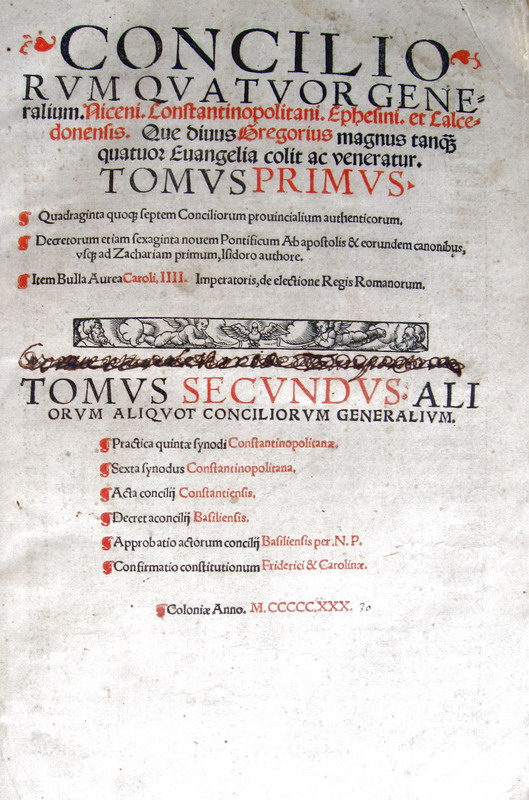 CONCILIO
RVM QVATVOR GENE⸗
ralium. Niceni. Constantinopolitani. Ephesini. et Calce⸗
donensis. Que diuus Gregorius magnus tanq̃
quatuor Euangelia colit ac veneratur.
TOMVS PRIMVS
¶ Quadraginta quoq; septem Conciliorum prouincialium authenticorum.
¶ Decretorum etiam sexaginta nouem Pontificum Ab apostolis & eorundem canonibus,
vsq; ad Zachariam primum, Isidoro authore.
¶ Item Bulla Aurea Caroli. IIII. Imperatoris, de electione Regis Romanorum.
TOMVS SECVNDVS. ALI
ORVM ALIQVOT CONCILIORVM GENERALIVM.
¶ Practica quintæ synodi Constantinopolitanæ.
¶ Sexta synodus Constantinopolitana.
¶ Acta concilij Constantiensis.
¶ Decret aconcilij Basiliensis.
¶ Approbatio actorum concilij Basiliensis per. N. P.
¶ Confirmatio constitutionum Friderici & Carolinæ.
¶ Coloniæ Anno. M. CCCCC. XXX. 30